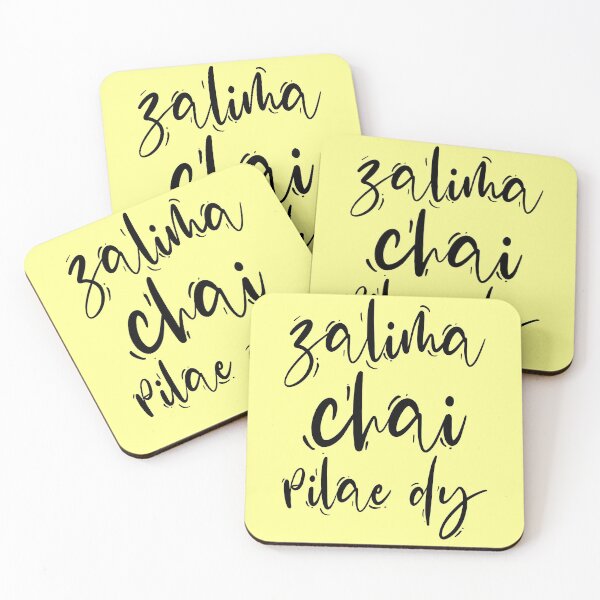 zalima
chai
zalima
chai
zalima
chai
pilae
zalima
chai
pilae dy